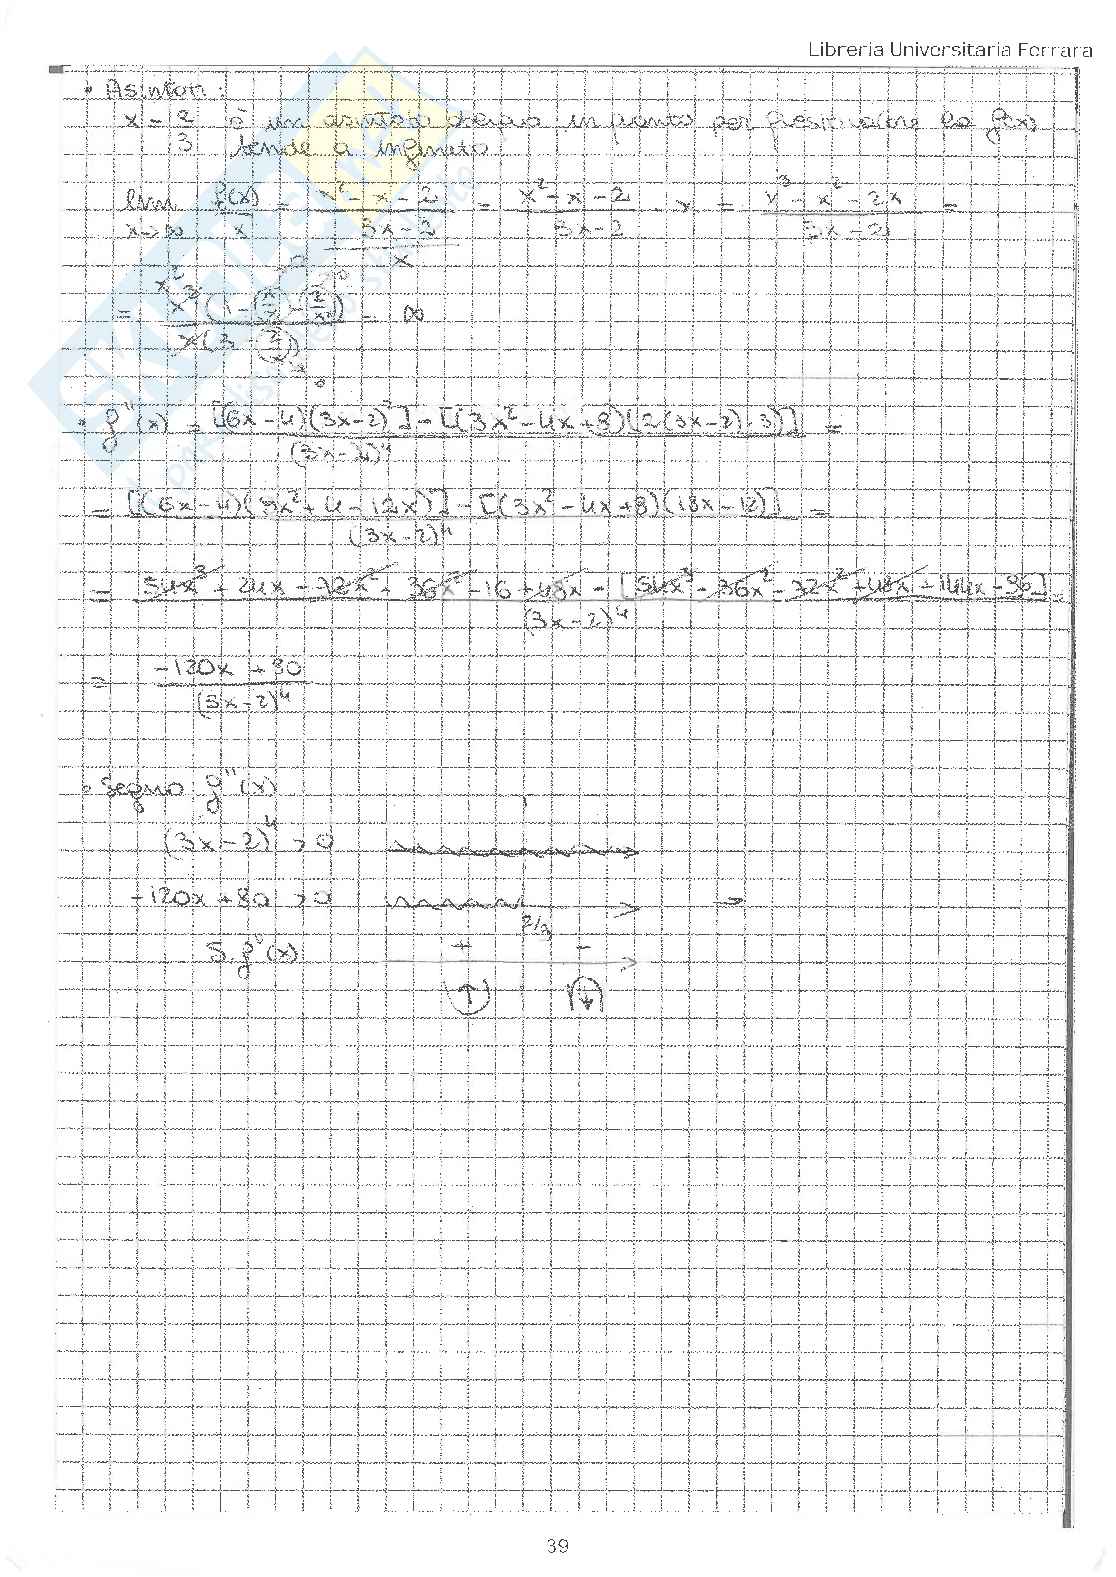 Libreria Universitaria Ferrara
• Asintoti:
x = 2/3 è un asintoto in quanto per la f(x)
tende a infinito
lim x→∞ f(x)/x = (x² - x - 2)/(3x - 2)/x = (x² - x - 2)/(3x - 2) · x = (x³ - x² - 2x)/(3x - 2) =
= x³(1 - x/x² - 2/x²)/x(3 - 2/x) = ∞
• f''(x) = [(6x-4)(3x-2)²] - [(3x²-4x+8)(2(3x-2)·3)]/(3x-2)⁴ =
= [(6x-4)(9x²+4-12x)] - [(3x²-4x+8)(18x-12)]/(3x-2)⁴ =
= 54x³ + 24x - 72x² + 36x² - 16 + 48x - [54x³ - 36x² - 72x² + 48x + 144x - 96]/(3x-2)⁴ =
= (-120x + 80)/(3x-2)⁴
• Segno f''(x)
(3x-2)⁴ > 0
-120x + 80 > 0
2/3
S. f''(x) + -
39